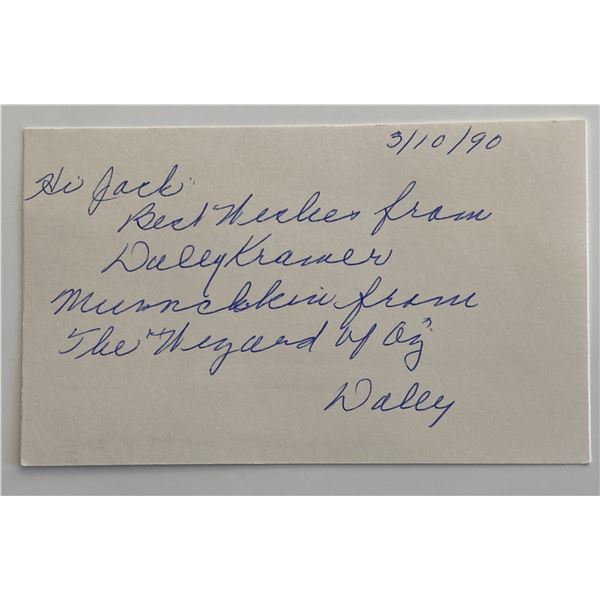 3/10/90
Hi Jack
Best Wishes from
Dolly Kramer
Munnchkin from
The Wizard of Oz
Dolly